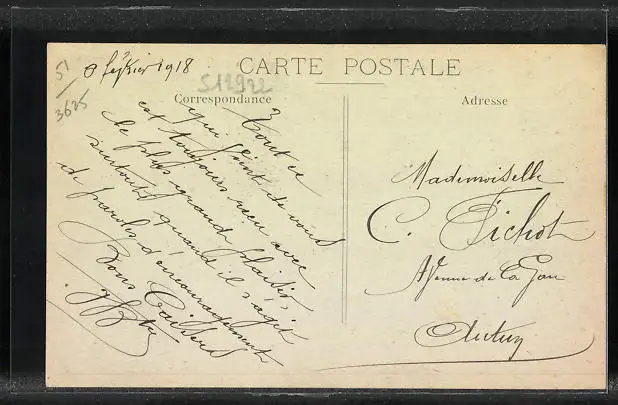 51
3625
8 février 1918
S12922
CARTE POSTALE
Correspondance
Adresse
Tout ce
qui vient de vous
est toujours reçu avec
le plus grand plaisir,
surtout quand il s'agit
de paroles d'encouragement
Bons Baisers
Mademoiselle
C. Pichot
Avenue de la Gare
Autun